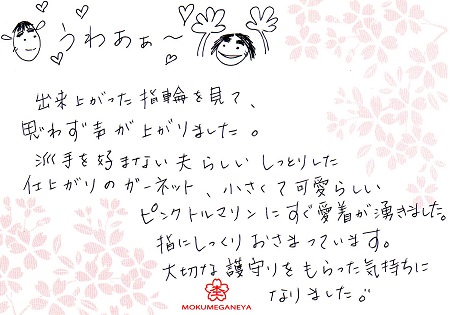 うわあぁ～
出来上がった指輪を見て、
思わず声が上がりました。
派手を好まない夫らしいしっとりした
仕上がりのガーネット、小さくて可愛らしい
ピンクトルマリンにすぐ愛着が湧きました。
指にしっくりおさまっています。
大切な護守りをもらった気持ちに
なりました。
MOKUMEGANEYA